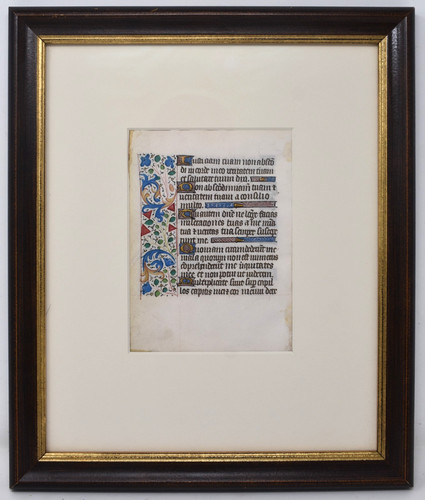 Iusticiam tuam non abscō
di in corde meo veritatem tuam
et salutare tuum dixi
Non abscōdi miām tuam et
veritatem tuam a consilio
multo
Tu autem dñe ne lōge facias
miseraciones tuas a me mīa
tua et veritas tua semper suscepe
runt me
Quoniam circundederūt me
mala quorum non est numerus
cōprehenderūt me iniquitates
mee et non potui ut viderem
Multiplicate sunt sup capil
los capitis mei et cor meum dere